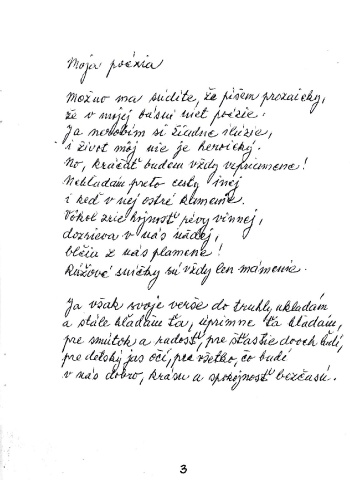 Moja poézia
Možno ma súdite, že píšem prozaicky,
že v mojej básni niet poézie.
Ja nerobím si žiadne ilúzie,
i život môj nie je heroický.
No, kráčať budem vždy vzpriamene!
Nehľadám preto cesty inej
i keď v nej ostré kamene.
Vôkol zrie hojnosť révy vinnej,
dozrieva v nás nádej,
blčia z nás plamene!
Ružové sníčky sú vždy len mámenie.
Ja však svoje verše do truhly ukladám
a stále hľadám ťa, úprimne ťa hľadám,
pre smútok a radosť, pre šťastie dvoch ľudí,
pre detský jas očí, pre všetko, čo budí
v nás dobro, krásu a spokojnosť bezčasú.
3